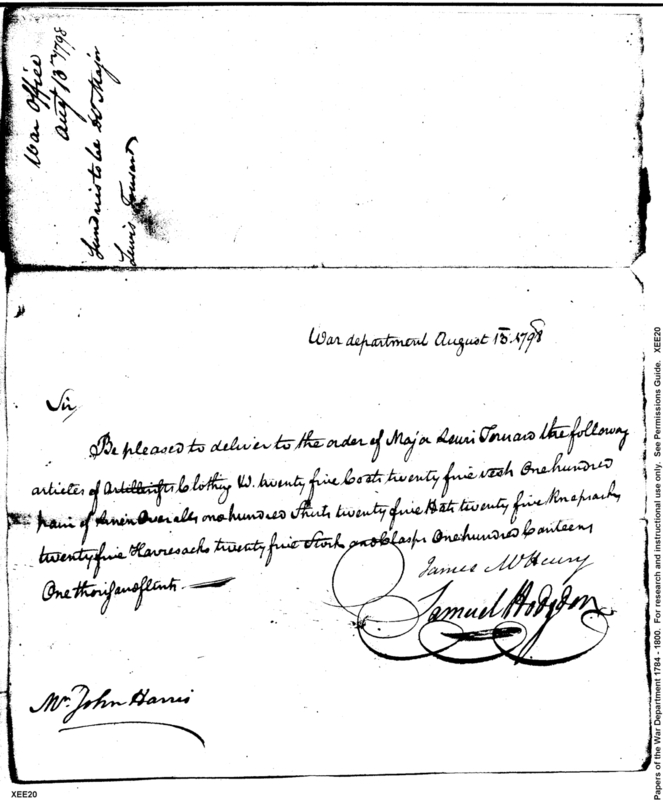 War Office
Augt 13th 1798
Sundries to be Dd Major
Lewis Tousard
War department August 13. 1798
Sir
Be pleased to deliver to the order of Major Lewis Tousard the following
articles of Clothing Vz. twenty five Coats twenty five vests One hundred
pair of Linen Overalls one hundred Shirts twenty five Hats twenty five Knapsacks
twenty five Havresacks twenty five Stocks and Clasps One hundred Canteens
One thousand flints.
James McHenry
Samuel Hodgdon
Mr. John Harris
XEE20
Papers of the War Department 1784 - 1800. For research and instructional use only. See Permissions Guide. XEE20